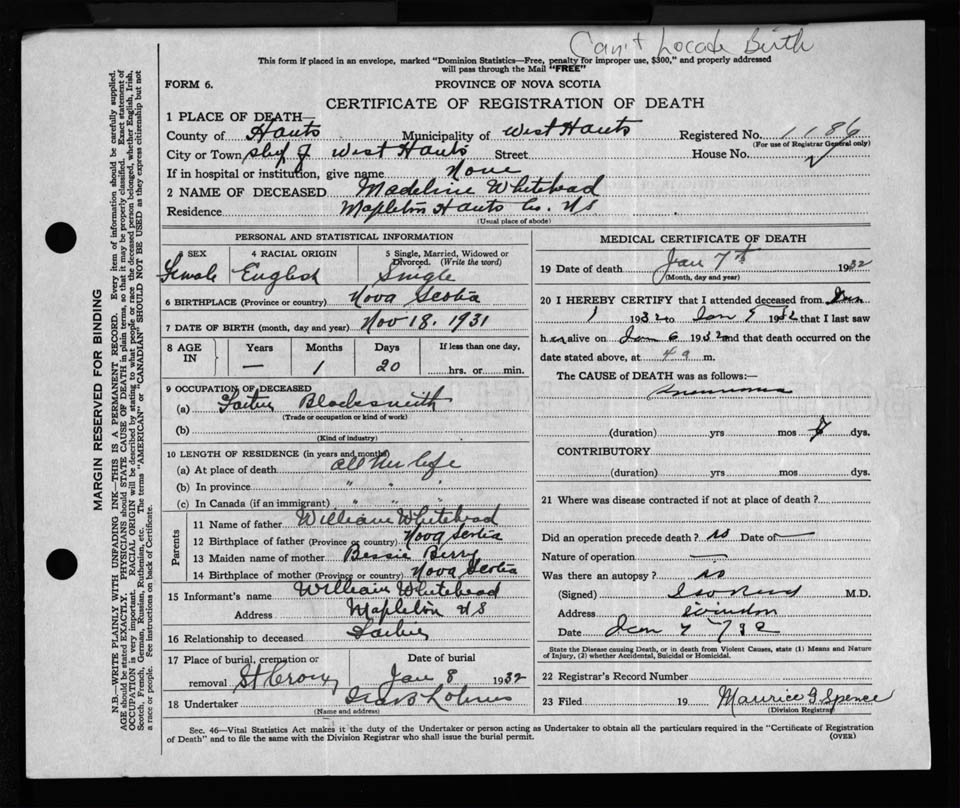 Can't Locate Birth
This form if placed in an envelope, marked "Dominion Statistics—Free, penalty for improper use, $300," and properly addressed
will pass through the Mail "FREE"
FORM 6.
PROVINCE OF NOVA SCOTIA
CERTIFICATE OF REGISTRATION OF DEATH
1 PLACE OF DEATH—
County of Hants Municipality of West Hants Registered No. 1186
(For use of Registrar General only)
City or Town West Hants Street House No.
If in hospital or institution, give name None
2 NAME OF DECEASED Madeline Whitehead
Residence Mapleton Hants Co. N S
(Usual place of abode)
PERSONAL AND STATISTICAL INFORMATION
3 SEX 4 RACIAL ORIGIN 5 Single, Married, Widowed or
Divorced. (Write the word)
Female English Single
6 BIRTHPLACE (Province or country) Nova Scotia
7 DATE OF BIRTH (month, day and year) Nov 18. 1931
8 AGE IN Years Months Days If less than one day,
— 1 20 hrs. or min.
9 OCCUPATION OF DECEASED
(a) Father Blacksmith
(Trade or occupation or kind of work)
(b)
(Kind of industry)
10 LENGTH OF RESIDENCE (in years and months)
(a) At place of death all her life
(b) In province " " "
(c) In Canada (if an immigrant) " " "
Parents
11 Name of father William Whitehead
12 Birthplace of father (Province or country) Nova Scotia
13 Maiden name of mother Bessie Berry
14 Birthplace of mother (Province or country) Nova Scotia
15 Informant's name William Whitehead
Address Mapleton N S
16 Relationship to deceased Father
17 Place of burial, cremation or Date of burial
removal St Croix Jan 8 1932
18 Undertaker
(Name and address)
MEDICAL CERTIFICATE OF DEATH
19 Date of death Jan 7th 1932
(Month, day and year)
20 I HEREBY CERTIFY that I attended deceased from Jan
1 1932 to Jan 1932 that I last saw
her alive on Jan 6 1932 and that death occurred on the
date stated above, at 4 a m.
The CAUSE OF DEATH was as follows:—
Pneumonia
(duration) yrs mos dys.
CONTRIBUTORY
(duration) yrs mos dys.
21 Where was disease contracted if not at place of death?
Did an operation precede death? no Date of —
Nature of operation —
Was there an autopsy? no
(Signed) M.D.
Address Windsor
Date Jan 7 1932
State the Disease causing Death, or in death from Violent Causes, state (1) Means and Nature
of Injury, (2) whether Accidental, Suicidal or Homicidal.
22 Registrar's Record Number
23 Filed 19 Maurice G Spence
(Division Registrar)
Sec. 46—Vital Statistics Act makes it the duty of the Undertaker or person acting as Undertaker to obtain all the particulars required in the "Certificate of Registration
of Death" and to file the same with the Division Registrar who shall issue the burial permit. (OVER)
MARGIN RESERVED FOR BINDING
N.B.—WRITE PLAINLY WITH UNFADING INK—THIS IS A PERMANENT RECORD. Every item of information should be carefully supplied.
AGE should be stated EXACTLY. PHYSICIANS should STATE CAUSE OF DEATH in plain terms, so that it may be properly classified. Exact statement of
OCCUPATION is very important. RACIAL ORIGIN will be described by stating to what people or race the deceased person belonged, whether English, Irish,
Scotch, French, German, Russian, Ruthenian, etc. The terms "AMERICAN" or "CANADIAN" SHOULD NOT BE USED as they express citizenship but not
a race or people. See instructions on back of Certificate.